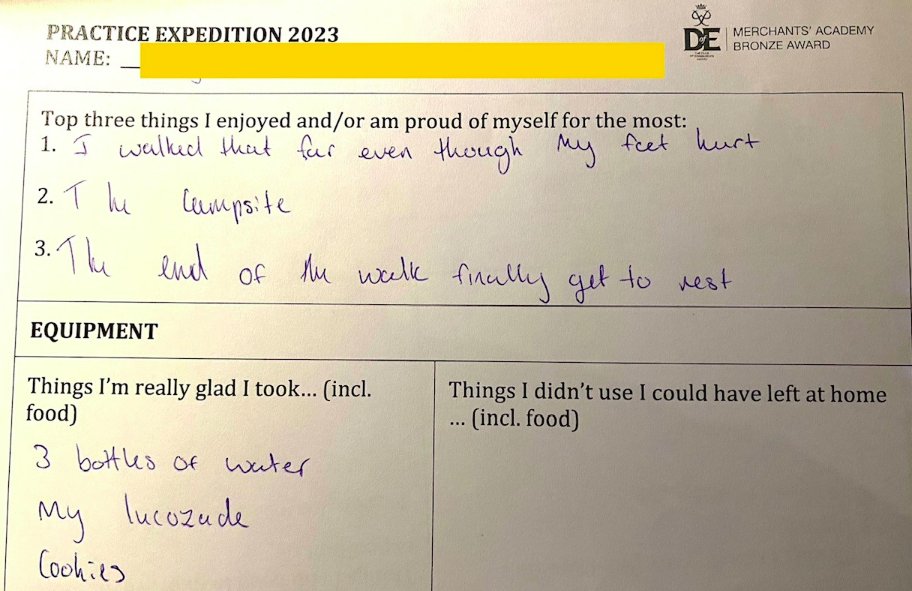 PRACTICE EXPEDITION 2023
NAME:
DofE
MERCHANTS' ACADEMY
BRONZE AWARD
Top three things I enjoyed and/or am proud of myself for the most:
1. I walked that far even though My feet hurt
2. The Campsite
3. The end of the walk finally get to rest
EQUIPMENT
Things I'm really glad I took... (incl.
food)
3 bottles of water
My lucozade
Cookies
Things I didn't use I could have left at home
... (incl. food)